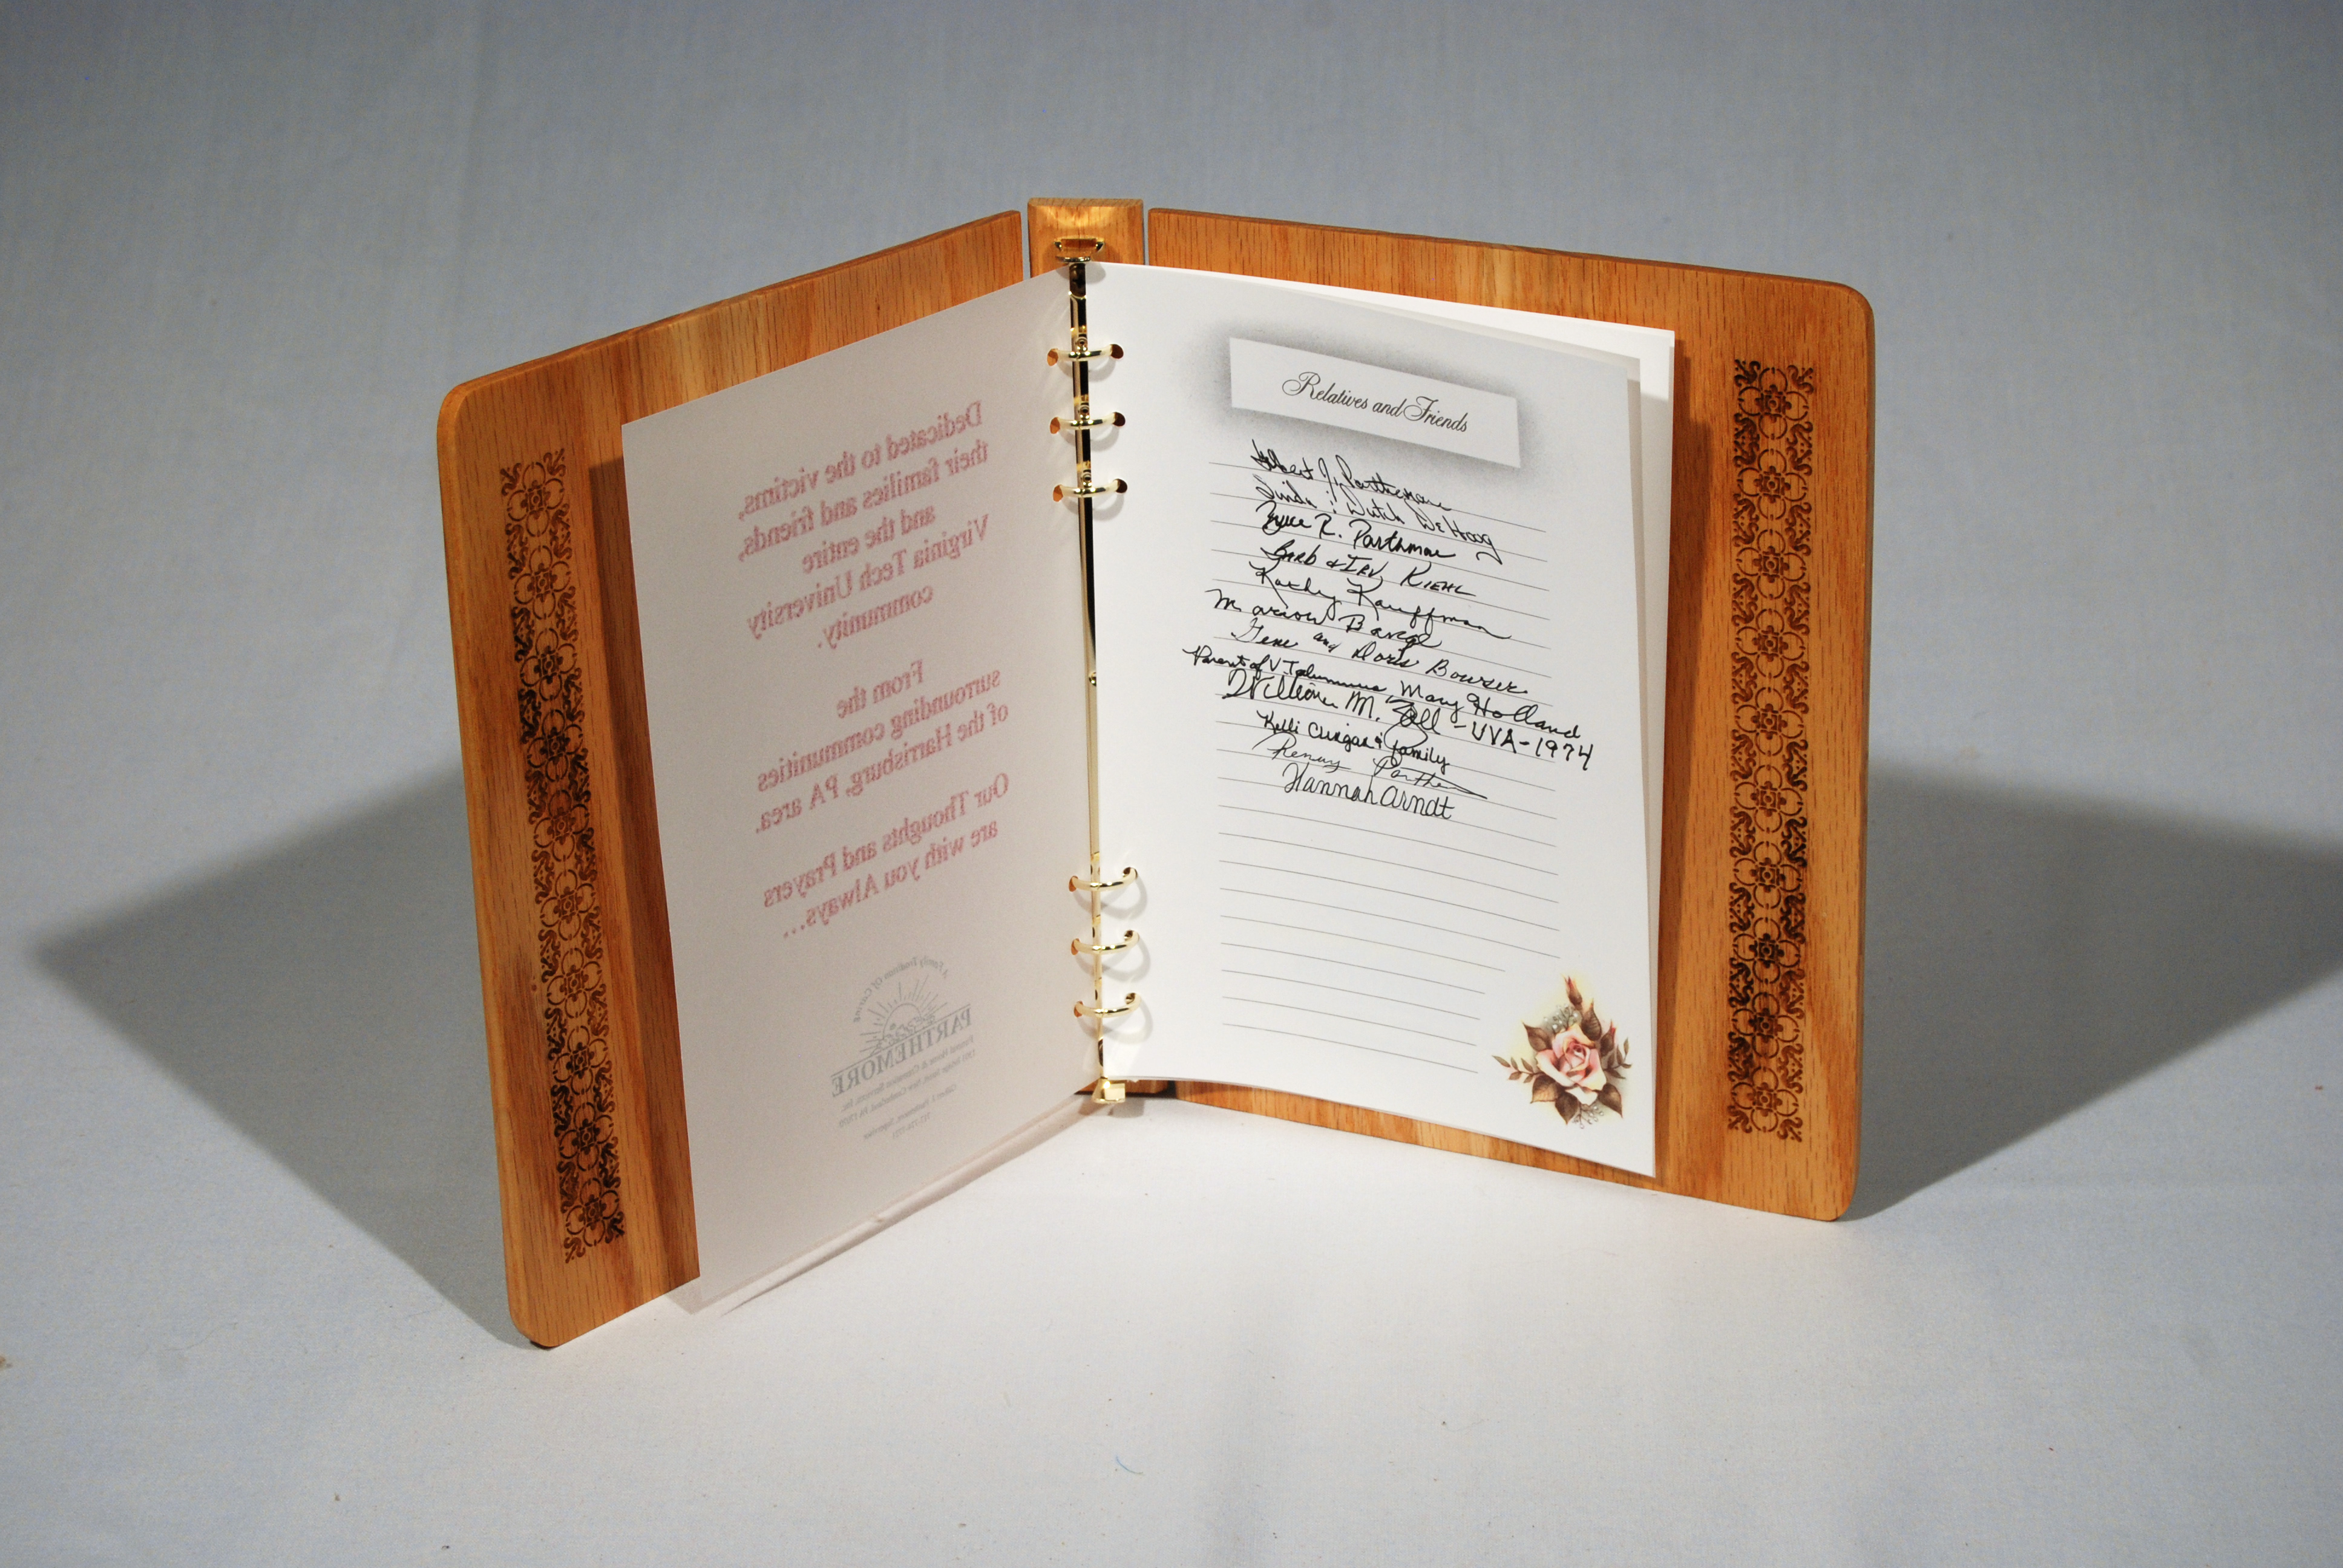 Dedicated to the victims,
their families and friends,
and the entire
Virginia Tech University
community.
From the
surrounding communities
of the Harrisburg, PA area.
Our Thoughts and Prayers
are with you Always...
A Family Tradition Of Caring
PARTHEMORE
Funeral Home & Cremation Services, Inc.
Relatives and Friends
Gilbert J. Parthemore
Linda & Dutch DeHoog
Bruce R. Parthemore
Barb & IRV KIEHL
Kathy Kauffman
Marion Barge
Gene and Doris Bowser
Parents of VT alumnus Mary Holland
William M. Zoll - UVA - 1974
Kelli & family
Hannah Arndt